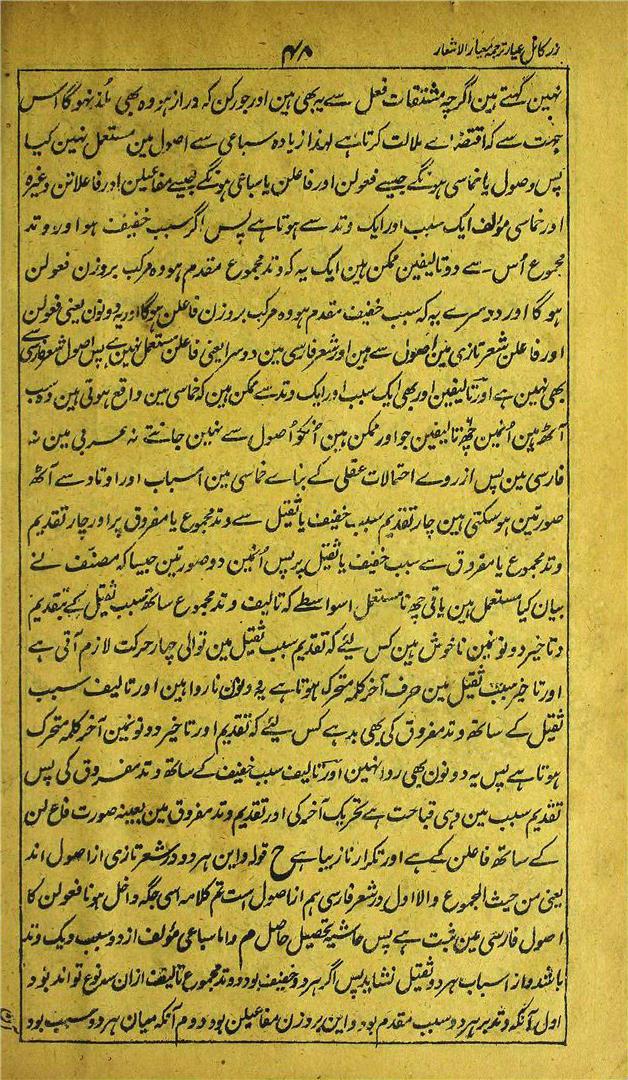 زر کامل عیار ترجمہ معیار الاشعار ۴۸
نہین کہتے ہین اگرچہ مشتقات فعل سے یہ بھی ہین اور جو رکن کہ دراز ہو وہ بھی ملذ نہو گا اس
جہت سے کہ اقتضاے ملالت کرتا ہے لہذا زیادہ سباعی سے اصول مین مستعمل نہین کیا
پس اصول یا خماسی ہونگے جیسے فعولن اور فاعلن یا سباعی ہونگے جیسے مفاعیلن اور فاعلاتن وغیرہ
اور خماسی مؤلف ایک سبب اور ایک وتد سے ہوتا ہے پس اگر سبب خفیف ہو اور وتد
مجموع اُس سے دو تالیفین ممکن ہین ایک یہ کہ وتد مجموع مقدم ہو وہ مرکب بروزن فعولن
ہو گا اور دوسرے یہ کہ سبب خفیف مقدم ہو وہ مرکب بروزن فاعلن ہوگا اور یہ دونون یعنی فعولن
اور فاعلن شعر تازی مین اصول سے ہین اور شعر فارسی مین دوسرا یعنی فاعلن مستعمل نہین ہے پس اصول شعر فارسی سے
بھی نہین ہے اور تالیفین اور بھی ایک سبب اور ایک وتد سے ممکن ہین کہ خماسی مین واقع ہوتی ہین وہ سب
آٹھ ہین اُنمین چھ تالیفین جو اور ممکن ہین اُنکو اُصول سے نہین جانتے نہ عربی مین نہ
فارسی مین پس از روے احتمالات عقلی کے بناے خماسی مین اسباب اور اوتاد سے آٹھ
صورتین ہو سکتی ہین چار تقدیم سبب خفیف یا ثقیل سے وتد مجموع یا مفروق پر اور چار تقدیم
وتد مجموع یا مفروق سے سبب خفیف یا ثقیل پر پس اُنمین دو صورتین جیسا کہ مصنف نے
بیان کیا مستعمل ہین باقی چھ نا مستعمل اسواسطے کہ تالیف وتد مجموع ساتھ سبب ثقیل کے بتقدیم
و تاخیر دونونمین ناخوش ہین کس لئے کہ تقدیم سبب ثقیل مین توالی چہار حرکت لازم آتی ہے
اور تاخیر سبب ثقیل مین حرف آخر کلمہ متحرک ہوتا ہے یہ دونون ناروا ہین اور تالیف سبب
ثقیل کے ساتھ وتد مفروق کی بھی بد ہے کس لیئے کہ تقدیم اور تاخیر دونونمین آخر کلمہ متحرک
ہوتا ہے پس یہ دونون بھی روا نہین اور تالیف سبب خفیف کے ساتھ وتد مفروق کی پس
تقدیم سبب مین وہی قباحت ہے تحریک آخر کی اور تقدیم وتد مفروق مین بعینہ صورت فاع لن
کے ساتھ فاعلن کے ہے اور تکرار نازیبا ہے ح قولہ و این ہر دو در شعر تازی از اصول اند
یعنی من حیث المجموع والا اول در شعر فارسی ہم از اصول است تم کلامہ اسی جگہ داخل ہونا فعولن کا
اصول فارسی مین ثبت ہے پس حاشیہ تحصیل حاصل م و اما سباعی مؤلف از دو سبب و یک وتد
باشد و از اسباب ہر دو ثقیل نشاید پس اگر ہر دو خفیف بود و وتد مجموع تالیف ازان سہ نوع تواند بود
اول آنکہ وتد بر ہر دو سبب مقدم بود و این بروزن مفاعیلن بود دوم آنکہ میان ہر دو سبب بود